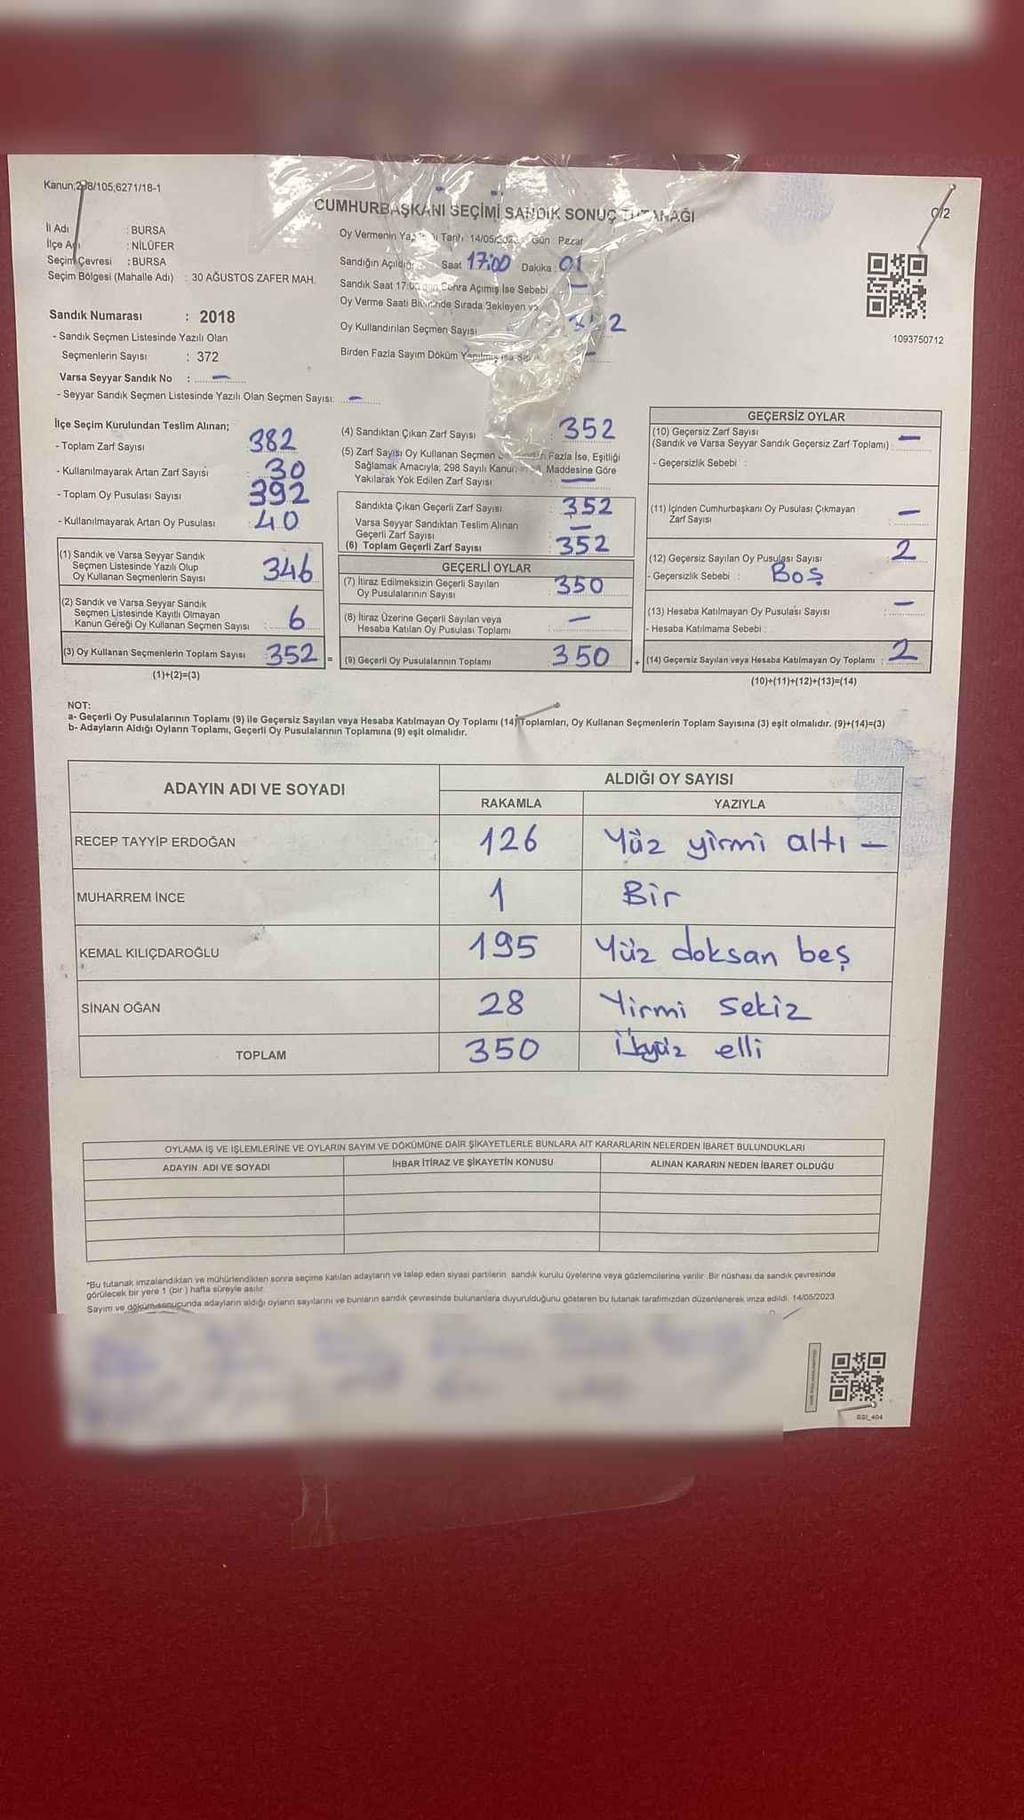 Kanun:298/105,6271/18-1
CUMHURBAŞKANI SEÇİMİ SANDIK SONUÇ TUTANAĞI
C/2
İl Adı : BURSA
İlçe Adı : NİLÜFER
Seçim Çevresi : BURSA
Seçim Bölgesi (Mahalle Adı) : 30 AĞUSTOS ZAFER MAH.
Sandık Numarası : 2018
- Sandık Seçmen Listesinde Yazılı Olan
Seçmenlerin Sayısı : 372
Varsa Seyyar Sandık No : –
- Seyyar Sandık Seçmen Listesinde Yazılı Olan Seçmen Sayısı: –
Oy Vermenin Tarihi 14/05/2023 Gün : Pazar
Sandığın Açıldığı Saat 17:00 Dakika : 01
Sandık Saat 17:00 Sonra Açılmış İse Sebebi –
Oy Verme Saati Sırada Bekleyen
Oy Kullandırılan Seçmen Sayısı
Birden Fazla Sayım Döküm –
1093750712
İlçe Seçim Kurulundan Teslim Alınan;
- Toplam Zarf Sayısı 382
- Kullanılmayarak Artan Zarf Sayısı 30
- Toplam Oy Pusulası Sayısı 392
- Kullanılmayarak Artan Oy Pusulası 40
(1) Sandık ve Varsa Seyyar Sandık
Seçmen Listesinde Yazılı Olup
Oy Kullanan Seçmenlerin Sayısı 346
(2) Sandık ve Varsa Seyyar Sandık
Seçmen Listesinde Kayıtlı Olmayan
Kanun Gereği Oy Kullanan Seçmen Sayısı 6
(3) Oy Kullanan Seçmenlerin Toplam Sayısı 352 =
(1)+(2)=(3)
(4) Sandıktan Çıkan Zarf Sayısı : 352
(5) Zarf Sayısı Oy Kullanan Seçmen Fazla İse, Eşitliği
Sağlamak Amacıyla, 298 Sayılı Maddesine Göre
Yakılarak Yok Edilen Zarf Sayısı –
Sandıkta Çıkan Geçerli Zarf Sayısı : 352
Varsa Seyyar Sandıktan Teslim Alınan
Geçerli Zarf Sayısı –
(6) Toplam Geçerli Zarf Sayısı : 352
GEÇERLİ OYLAR
(7) İtiraz Edilmeksizin Geçerli Sayılan
Oy Pusulalarının Sayısı : 350
(8) İtiraz Üzerine Geçerli Sayılan veya
Hesaba Katılan Oy Pusulası Toplamı –
(9) Geçerli Oy Pusulalarının Toplamı 350 +
GEÇERSİZ OYLAR
(10) Geçersiz Zarf Sayısı
(Sandık ve Varsa Seyyar Sandık Geçersiz Zarf Toplamı) : –
- Geçersizlik Sebebi :
(11) İçinden Cumhurbaşkanı Oy Pusulası Çıkmayan
Zarf Sayısı –
(12) Geçersiz Sayılan Oy Pusulası Sayısı 2
- Geçersizlik Sebebi : Boş
(13) Hesaba Katılmayan Oy Pusulası Sayısı –
- Hesaba Katılmama Sebebi :
(14) Geçersiz Sayılan veya Hesaba Katılmayan Oy Toplamı : 2
(10)+(11)+(12)+(13)=(14)
NOT:
a- Geçerli Oy Pusulalarının Toplamı (9) ile Geçersiz Sayılan veya Hesaba Katılmayan Oy Toplamı (14) Toplamları, Oy Kullanan Seçmenlerin Toplam Sayısına (3) eşit olmalıdır. (9)+(14)=(3)
b- Adayların Aldığı Oyların Toplamı, Geçerli Oy Pusulalarının Toplamına (9) eşit olmalıdır.
ADAYIN ADI VE SOYADI ALDIĞI OY SAYISI
RAKAMLA YAZIYLA
RECEP TAYYİP ERDOĞAN 126 Yüz yirmi altı –
MUHARREM İNCE 1 Bir
KEMAL KILIÇDAROĞLU 195 Yüz doksan beş
SİNAN OĞAN 28 Yirmi sekiz
TOPLAM 350 elli
OYLAMA İŞ VE İŞLEMLERİNE VE OYLARIN SAYIM VE DÖKÜMÜNE DAİR ŞİKAYETLERLE BUNLARA AİT KARARLARIN NELERDEN İBARET BULUNDUKLARI
ADAYIN ADI VE SOYADI İHBAR İTİRAZ VE ŞİKAYETİN KONUSU ALINAN KARARIN NEDEN İBARET OLDUĞU
*Bu tutanak imzalandıktan ve mühürlendikten sonra seçime katılan adayların ve talep eden siyasi partilerin sandık kurulu üyelerine veya gözlemcilerine verilir. Bir nüshası da sandık çevresinde
görülecek bir yere 1 (bir) hafta süreyle asılır.
Sayım ve döküm sonucunda adayların aldığı oyların sayılarını ve bunların sandık çevresinde bulunanlara duyurulduğunu gösteren bu tutanak tarafımızdan düzenlenerek imza edildi. 14/05/2023